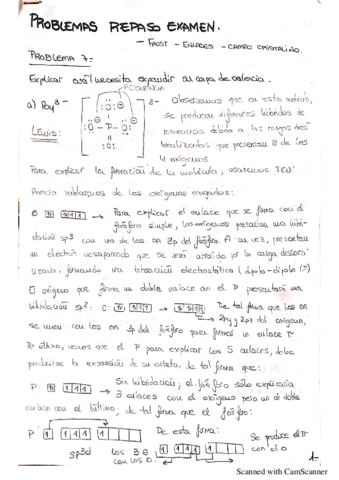 PROBLEMAS REPASO EXAMEN.
- FROST - ENLACES - CAMPO CRISTALINO.
PROBLEMA 7:
Explicar cuál necesita expandir su capa de valencia.
RESONANCIA
a) PO4 3-
3-
Observamos que en esta molécula,
se producen diferentes híbridos de
resonancia debido a las cargas des
Lewis:
localizadas que presentan 3 de los
4 oxígenos
Para explicar la formación de la molécula, usaremos TEV:
Primero hablaremos de los oxígenos cargados:
Para explicar el enlace que se forma con el
fósforo simple, los oxígenos presentan una hibri-
dación sp3 con uno de los on 3p del fósforo. A su vez, presentan
un electrón desapareado que se verá atraído por la carga deslocal
lizada, formando una interacción electrostática (dipolo-dipolo)
El oxígeno que forma un doble enlace con el P presentará una
hibridación sp2:
De tal forma que los on
2py y 2pz del oxígeno,
se unen con los on 3p del fósforo para formar un enlace π
Por último, vemos que el P para explicar los 5 enlaces, debe
producirse la expansión de su octeto, de tal forma que:
P:
Sin hibridación, el fósforo sólo explicaría
3 enlaces con el oxígeno pero no el doble
enlace con el último, de tal forma que el fósforo:
P
De esta forma:
Se produce el π
con el O.
sp3d
los 3 e
con los O.
1.
Scanned with CamScanner